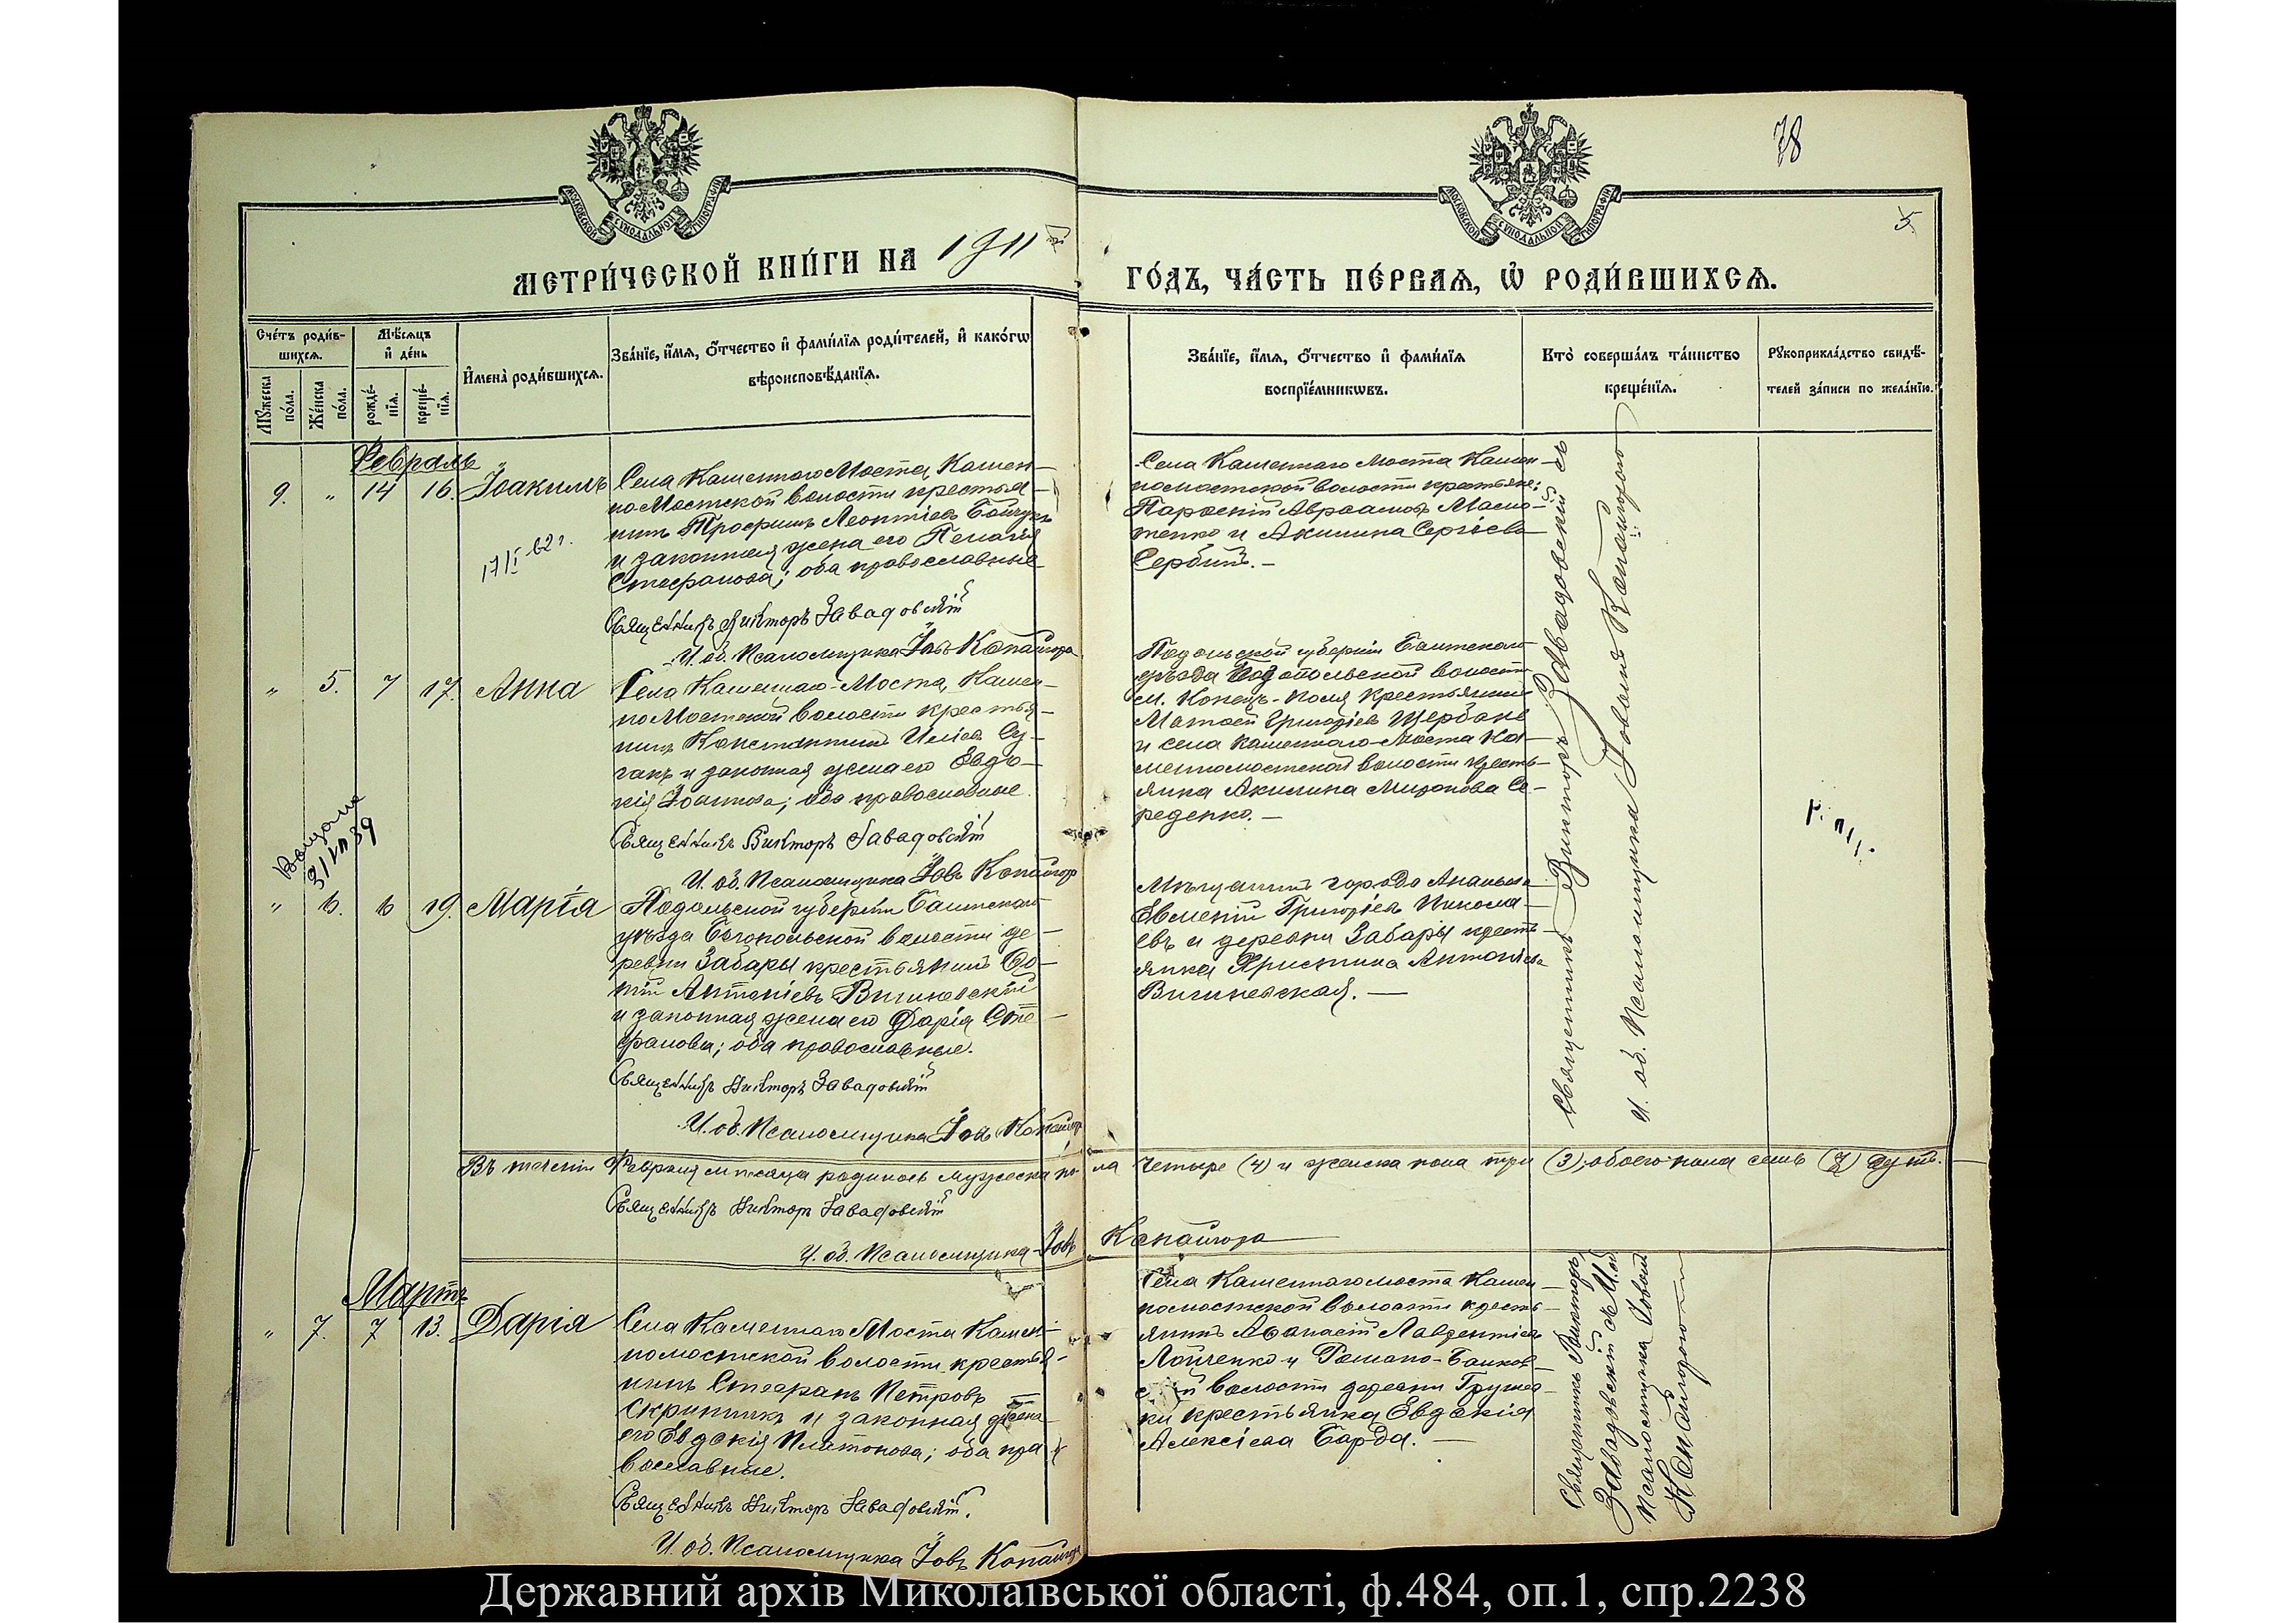 78
5.
МОСКОВСКОЙ СѴНОДАЛЬНОЙ ТИПОГРАФІИ
МОСКОВСКОЙ СѴНОДАЛЬНОЙ ТИПОГРАФІИ
МЕТРИ́ЧЕСКОЙ КНИ́ГИ НА 1911
ГО́ДЪ, ЧА́СТЬ ПЕ́РВАѦ, Ѽ РОДИ́ВШИХСѦ.
Сче́тъ роди́в-
шихсѧ.
Мѣ́сѧцъ
и҆ де́нь
И҆мена̀ роди́вшихсѧ.
Зва́нїе, и҆́мѧ, ѻ҆́тчество и҆ фами́лїѧ роди́телей, и҆ како́гѡ
вѣроисповѣ́данїѧ.
Зва́нїе, и҆́мѧ, ѻ҆́тчество и҆ фами́лїѧ
воспрїе́мникѡвъ.
Кто̀ соверша́лъ та́инство
креще́нїѧ.
Рꙋкоприкла́дство свидѣ́-
телей за́писи по жела́нїю.
Мꙋ́жеска
по́ла.
Же́нска
по́ла.
рожде́-
нїѧ.
креще́-
нїѧ.
Февраль
9. „ 14 16. Іоакимъ
17/I 62 г.
Села Каменнаго Моста, Камен-
но Мостской волости крестья-
нинъ Трофимъ Леонтіевъ Бойчукъ
и законная жена его Пелагія
Стефанова; оба православные
Священникъ Викторъ Завадовскій
И. об. Псаломщика Іовъ Копайгора
Села Каменнаго Моста Камен-
номостской волости крестьяне:
Парфеній Авраамовъ Масло-
тенко и Акилина Сергіева
Сербинъ.-
„ 5. 7 17. Анна
Села Каменнаго-Моста, Камен-
но Мостской волости крестья-
нинъ Константинъ Иліевъ Су-
гакъ и законная жена его Евдо-
кія Іоаннова; оба православные.
Священникъ Викторъ Завадовскій
И. об. Псаломщика Іовъ Копайгора
Подольской губерніи Балтскаго
уѣзда Богопольской волости
м. Конец-Поля крестьянинъ
Матфей Григоріевъ Щербане
и села Каменнаго-Моста Ка-
менномостской волости кресть-
янка Акилина Миронова Се-
реденко.-
31 39
„ 6. 6 19. Марія
Подольской губерніи Балтскаго
уѣзда Богопольской волости де-
ревни Забары крестьянинъ Фо-
тій Антоніевъ Вишневскій
и законная жена его Дарія Сте-
фанова; оба православные.
Священникъ Викторъ Завадовскій
И. об. Псаломщика Іовъ Копайгора
Мѣщанинъ города Ананьева
Евменій Григоріевъ Никола-
евъ и деревни Забары кресть-
янка Христина Антоніева
Вишневская.-
Священникъ Викторъ Завадовскій съ
И. об. Псаломщика Іовомъ Копайгорою
Въ теченіи Февраля мѣсяца родилось мужеска пола четыре (4) и женска пола три (3), обоего пола семь (7) душъ.
Священникъ Викторъ Завадовскій
И. об. Псаломщика Іовъ Копайгора
Мартъ
„ 7. 7 13. Дарія
Села Каменнаго Моста Камен-
номостской волости крестья-
нинъ Стефанъ Петровъ
Скрипникъ и законная жена
его Евдокія Платонова; оба пра-
вославные.
Священникъ Викторъ Завадовскій.
И. об. Псаломщика Іовъ Копайгора
Села Каменнаго моста Камен-
номостской волости кресть-
янинъ Афанасій Лаврентіевъ
Лойченко и Романо-Балков-
ской волости деревни Грушев-
ки крестьянка Евдокія
Алексіева Барда.-
Священникъ Викторъ
Завадовскій съ И. об.
Псаломщика Іовомъ
Копайгорою
Державний архів Миколаївської області, ф.484, оп.1, спр.2238